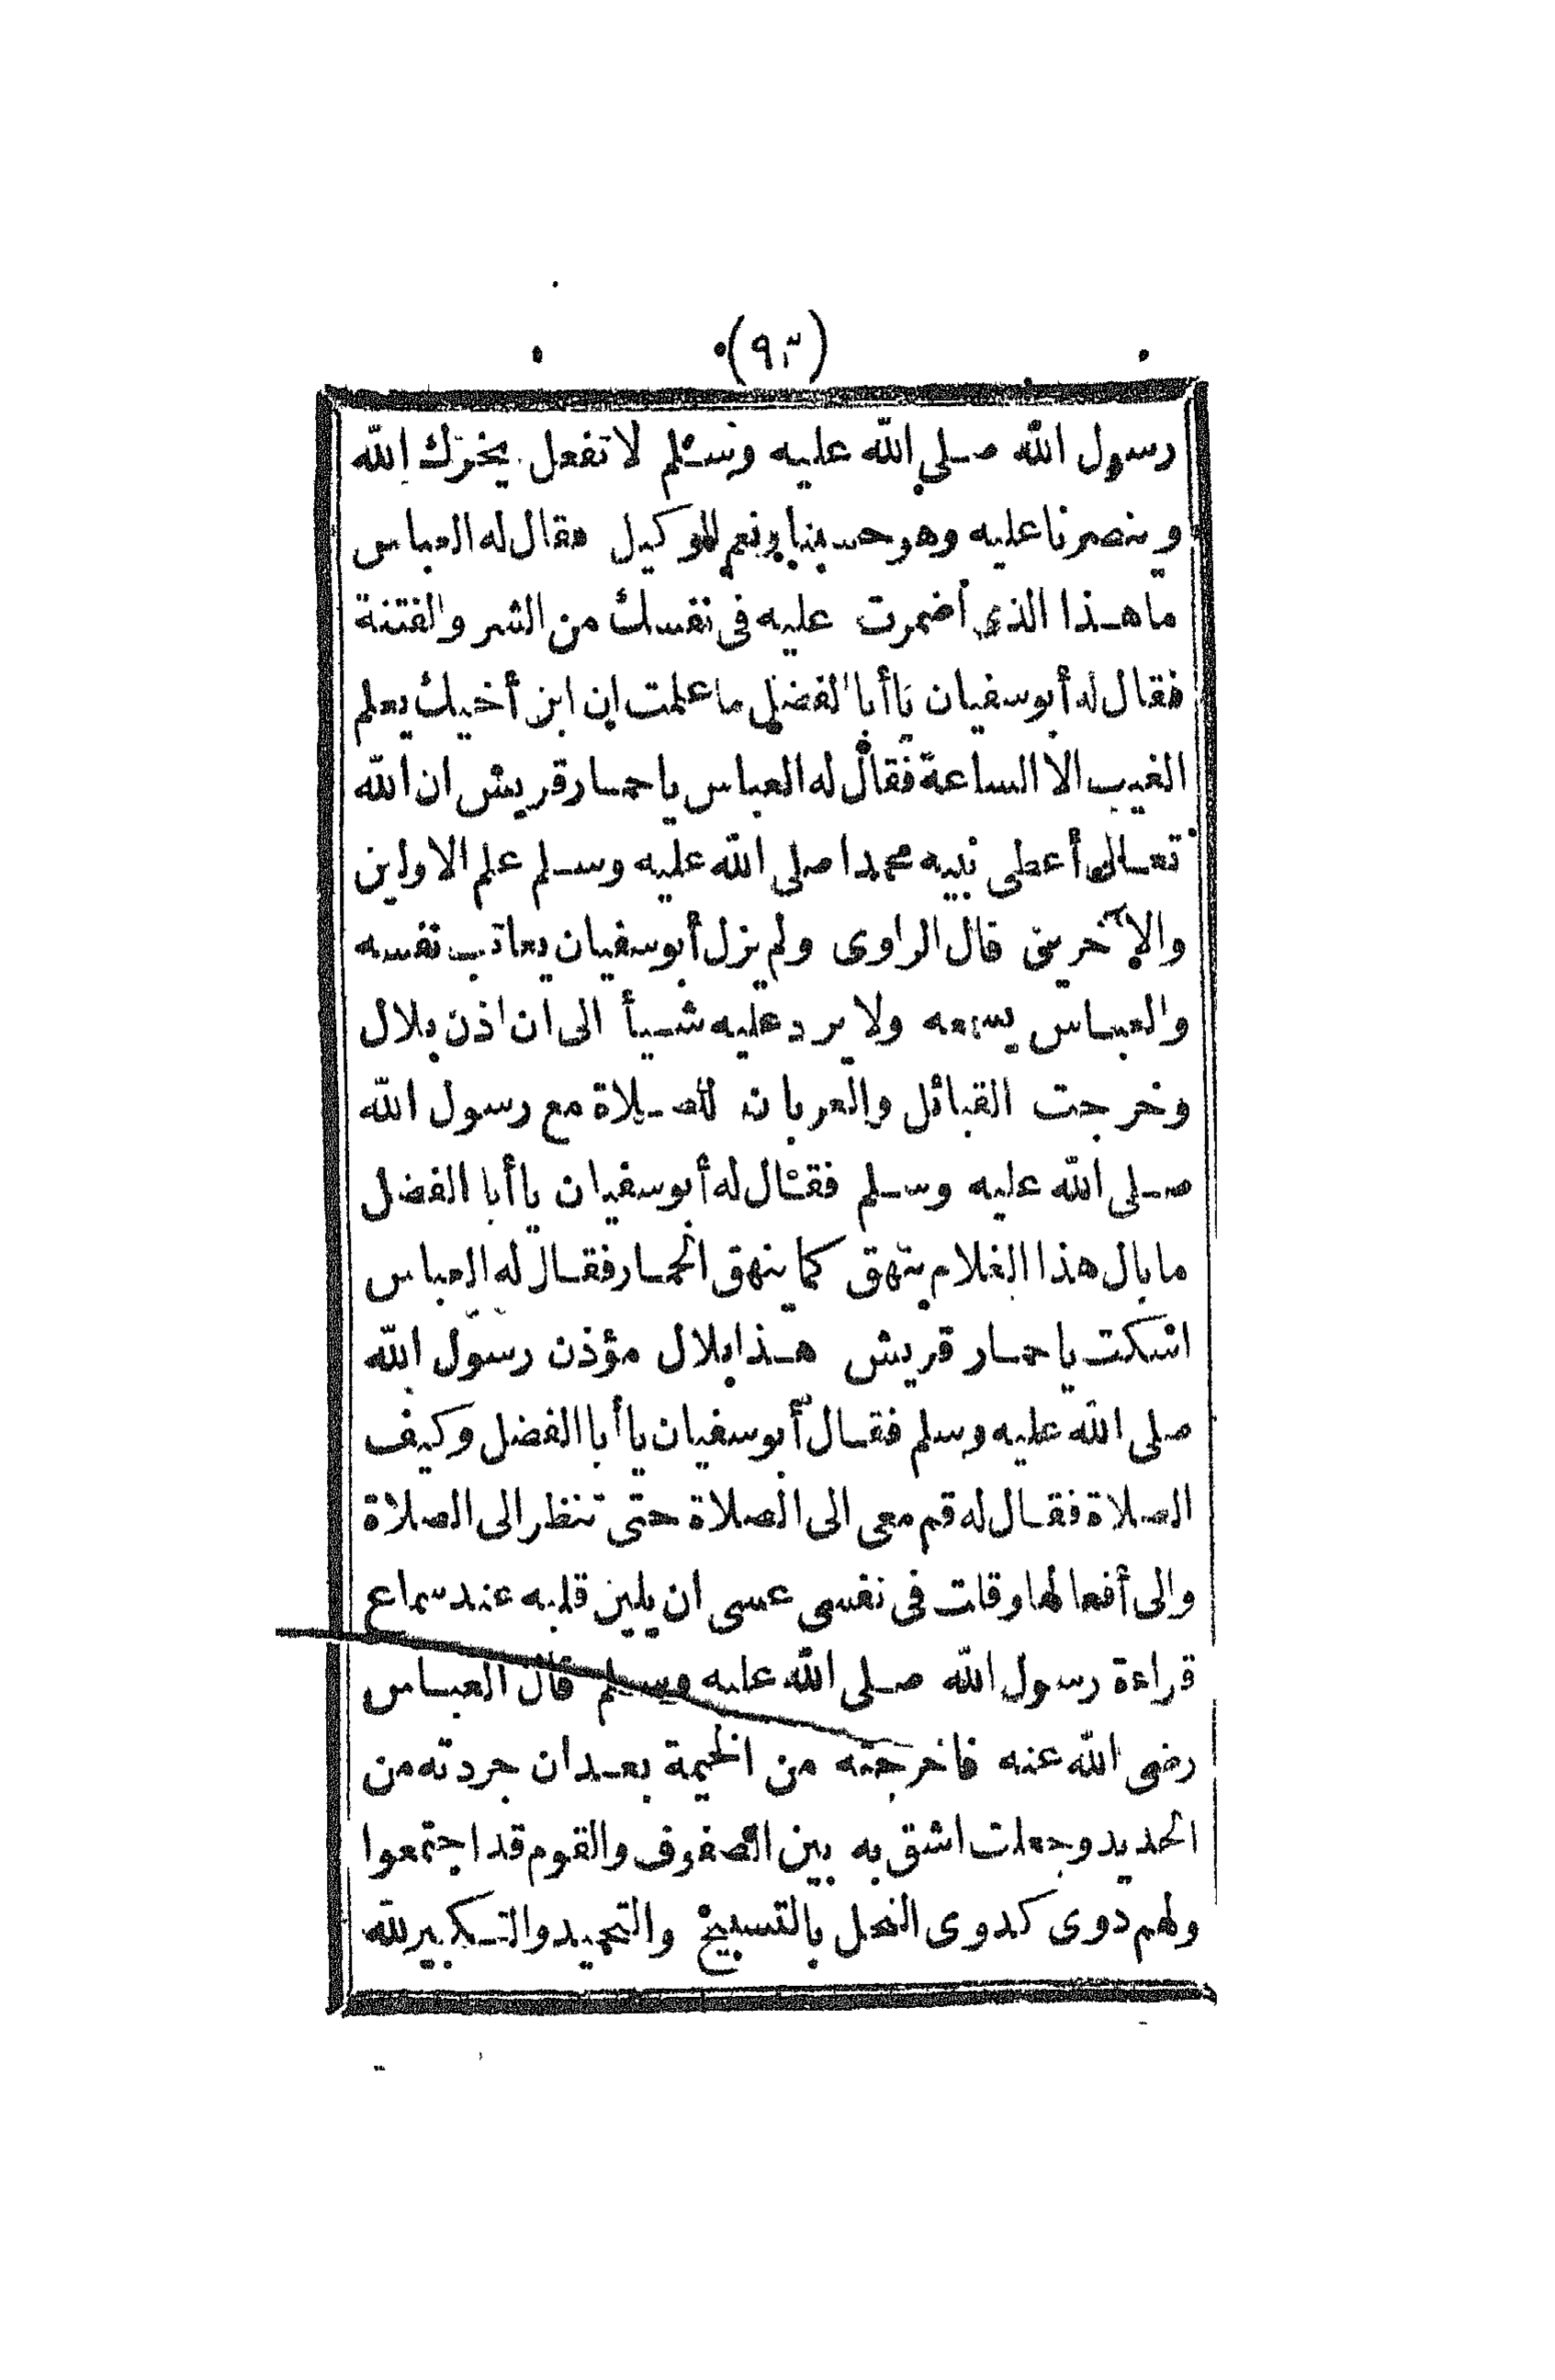 (٩٣)
رسول الله صلى الله عليه وسلم لا تفعل يخزك الله
وينصرنا عليه وهو حسبنا ونعم الوكيل فقال له العباس
ما هذا الذى أضمرت عليه فى نفسك من الشر والفتنة
فقال له أبو سفيان يا أبا الفضل ما علمت ان ابن أخيك يعلم
الغيب الا الساعة فقال له العباس يا حمار قريش ان الله
تعالى أعطى نبيه محمدا صلى الله عليه وسلم علم الاولين
والآخرين قال الراوى ولم يزل أبو سفيان يعاتب نفسه
والعباس يسمعه ولا يرد عليه شيأ الى ان اذن بلال
وخرجت القبائل والعربان للصلاة مع رسول الله
صلى الله عليه وسلم فقال له أبو سفيان يا أبا الفضل
ما بال هذا الغلام ينهق كما ينهق الحمار فقال له العباس
اسكت يا حمار قريش هذا بلال مؤذن رسول الله
صلى الله عليه وسلم فقال أبو سفيان يا أبا الفضل وكيف
الصلاة فقال له قم معى الى الصلاة حتى تنظر الى الصلاة
والى أفعالها وقلت فى نفسى عسى ان يلين قلبه عند سماع
قراءة رسول الله صلى الله عليه وسلم قال العباس
رضى الله عنه فاخرجته من الخيمة بعد ان جردته من
الحديد وجعلت اشق به بين الصفوف والقوم قد اجتمعوا
ولهم دوى كدوى النحل بالتسبيح والتحميد والتكبير لله